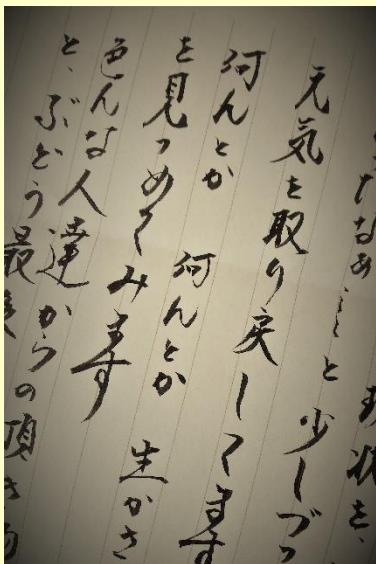 現状を、
たなあ…と少しづつ
元気を取り戻してます
何んとか 何んとか 生かさ
を見つめてみます
色んな人達からの頂き
と、ぶどう最